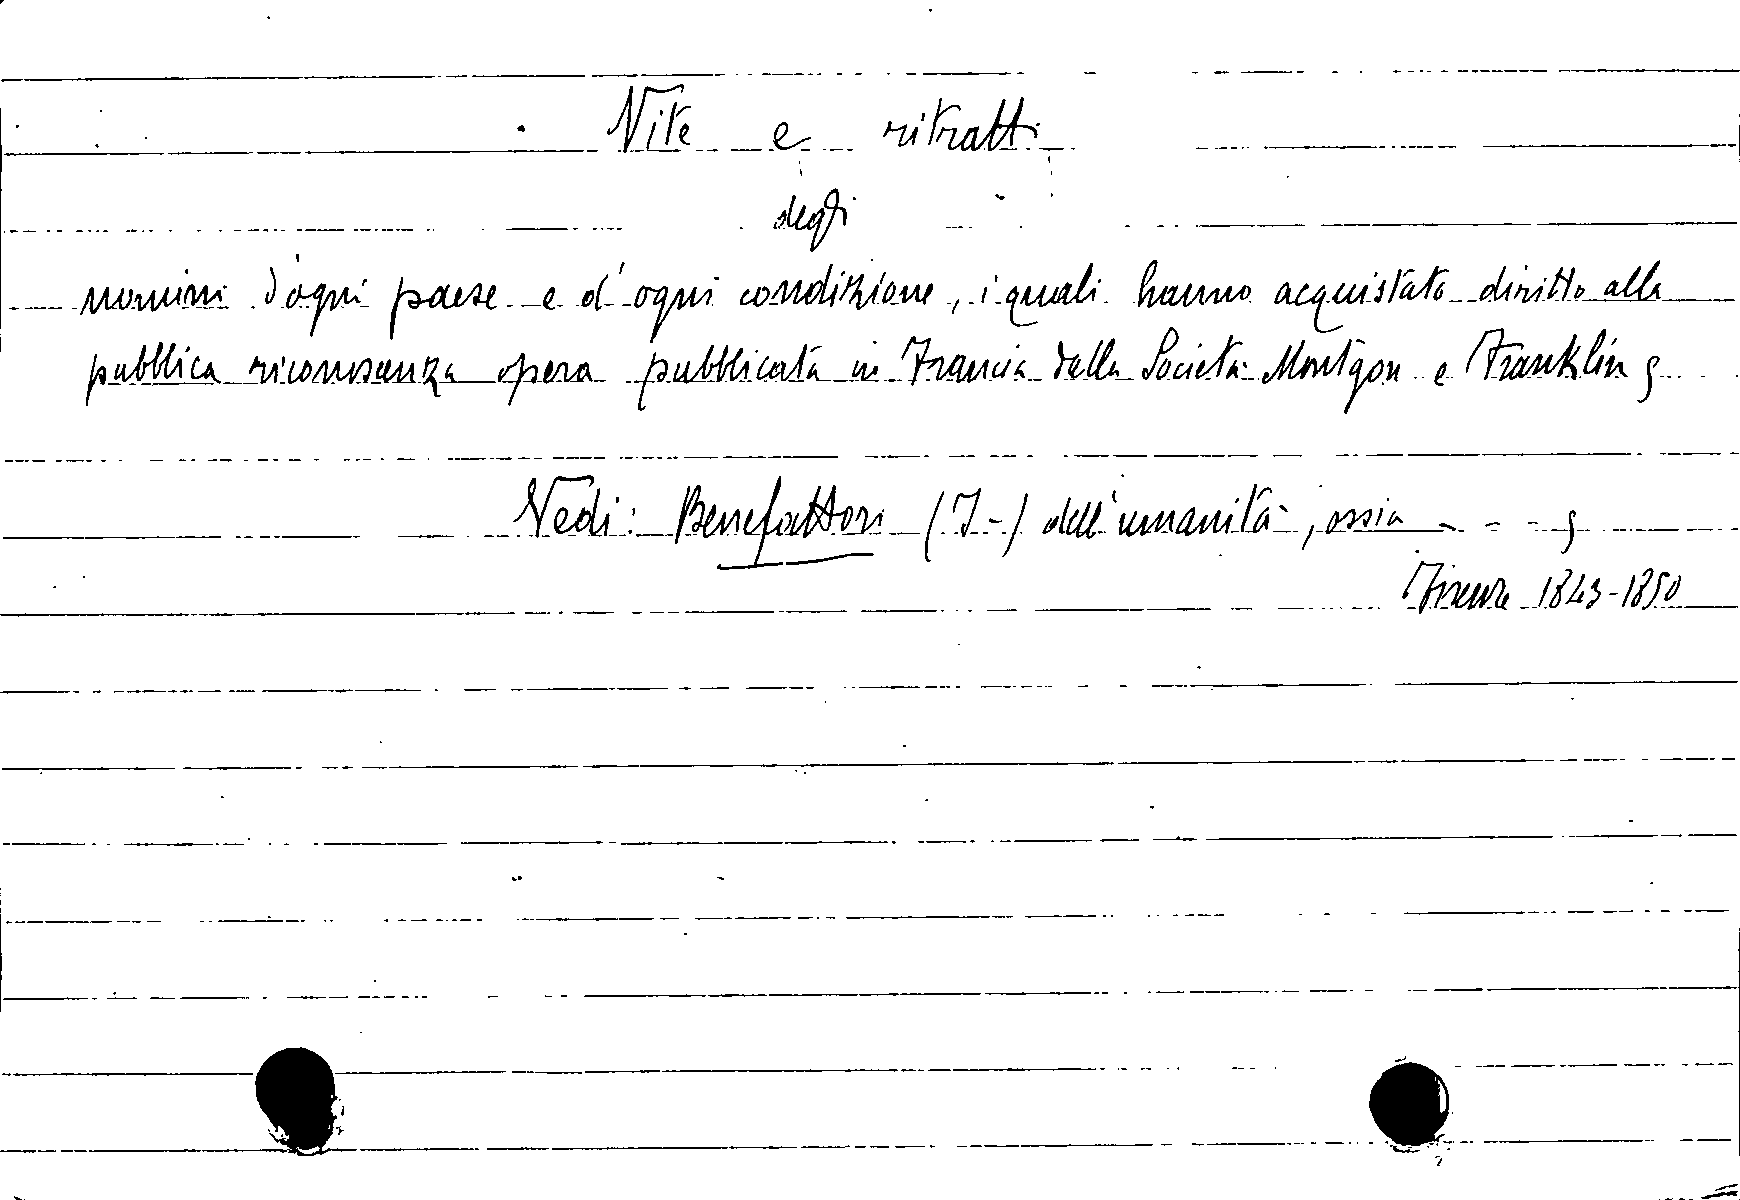 Vite e ritratti
degli
uomini d'ogni paese e d'ogni condizione, i quali hanno acquistato diritto alla
pubblica riconoscenza opera pubblicata in Francia dalla Società Montyon e Franklin
Vedi: Benefattori (I-) dell'umanità, ossia - - -
Firenze 1843-1850